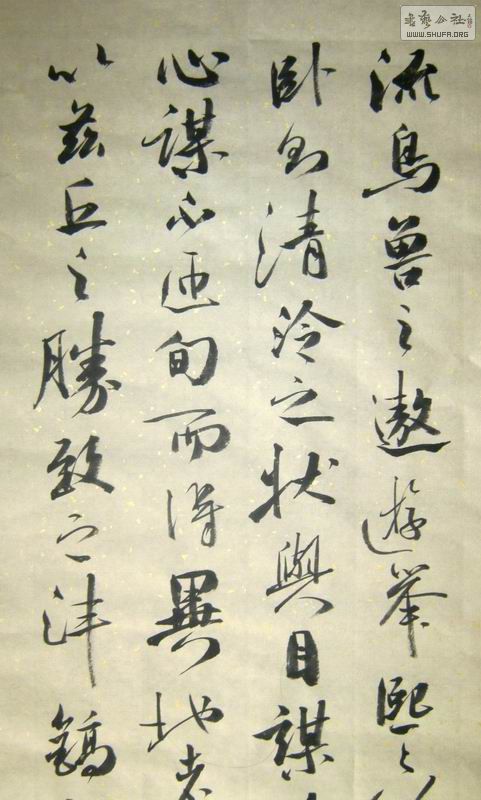 書藝公社
WWW.SHUFA.ORG
流鳥兽之遨遊舉熙々
卧則清泠之状與目謀
心謀不迊旬而得異地者
以兹丘之勝致之沣鎬